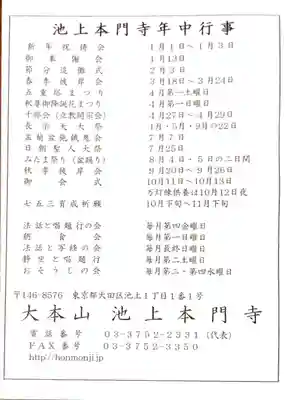 池上本門寺年中行事
新年祝祷会 1月1日～1月3日
御事始会 1月13日
節分追儺式 2月3日
春季彼岸会 3月18日～3月24日
五重塔まつり 4月第一土曜日
釈尊御降誕花まつり 4月第一日曜日
千部会（立教開宗会） 4月27日～4月29日
長栄大大祭 1月・5月・9月の22日
盂蘭盆施餓鬼会 7月7日
日朝聖人大祭 7月25日
みたま祭り（盆踊り） 8月4日・5日の二日間
秋季彼岸会 9月20日～9月26日
御会式 10月11日～10月13日
万灯練供養は10月12日夜
七五三育成祈願 10月下旬～11月下旬
法話と唱題行の会 毎月第四金曜日
朝食会 毎月第一日曜日
法話と写経の会 毎月最終日曜日
静坐と唱題行 毎月第二土曜日
おそうじの会 毎月第二・第四水曜日
〒146-8576 東京都大田区池上1丁目1番1号
大本山 池上本門寺
電話番号 03-3752-2331（代表）
FAX番号 03-3752-3350
http://honmonji.jp/